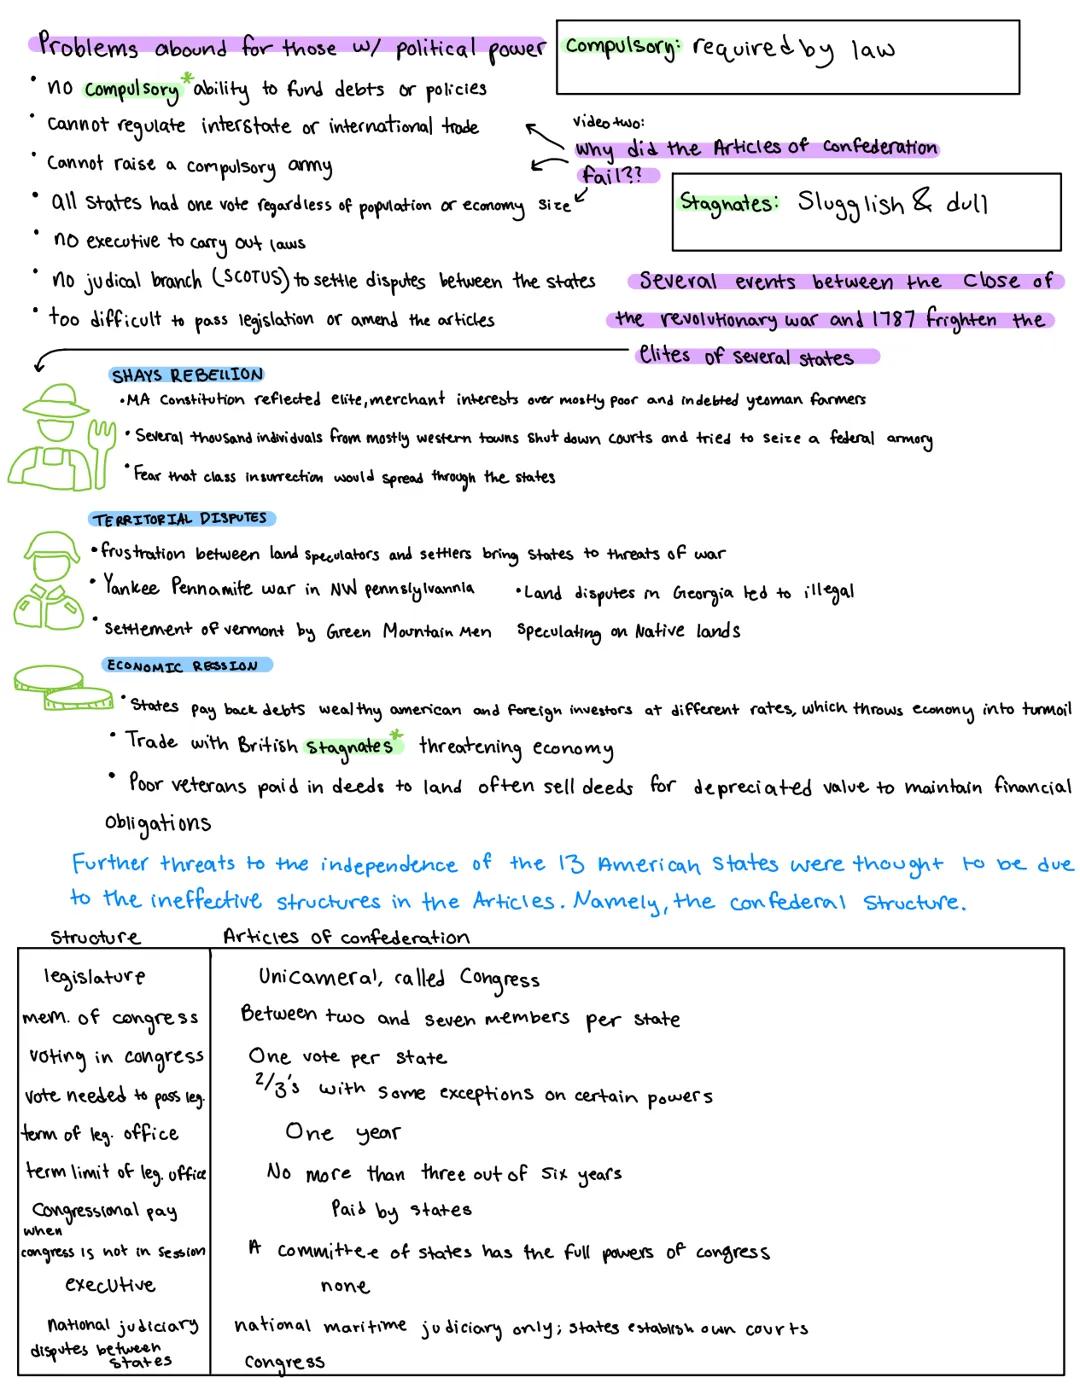 Problems abound for those w/ political power
Compulsory: required by law
• no compulsory* ability to fund debts or policies
• Cannot regulate interstate or international trade
• Cannot raise a compulsory army
• all states had one vote regardless of population or economy size
• no executive to carry out laws
• no judical branch (SCOTUS) to settle disputes between the states
• too difficult to pass legislation or amend the articles
Video two:
why did the Articles of Confederation
fail??
Stagnates: Slugglish & dull
Several events between the Close of
the revolutionary war and 1787 frighten the
elites of several states
SHAYS REBELLION
• MA Constitution reflected elite, merchant interests over mostly poor and indebted yeoman farmers
• Several thousand individuals from mostly western towns shut down courts and tried to seize a federal armory
• Fear that class insurrection would spread through the states
TERRITORIAL DISPUTES
• frustration between land speculators and settlers bring states to threats of war
• Yankee Pennamite war in NW pennslylvannia
• Settlement of vermont by Green Mountain Men
• Land disputes in Georgia led to illegal
speculating on Native lands
ECONOMIC RESSION
• States pay back debts wealthy american and foreign investors at different rates, which throws econony into turmoil
• Trade with British stagnates* threatening economy
• Poor veterans paid in deeds to land often sell deeds for depreciated value to maintain financial
obligations
Further threats to the independence of the 13 American States were thought to be due
to the ineffective structures in the Articles. Namely, the confederal structure.
Structure Articles of confederation
legislature Unicameral, called Congress
mem. of congress Between two and seven members per state
voting in congress One vote per state
vote needed to pass leg. 2/3's with some exceptions on certain powers
term of leg. office One year
term limit of leg. office No more than three out of six years
Congressional pay Paid by states
when
congress is not in session A committee of states has the full powers of congress
executive none
national judiciary national maritime judiciary only; states establish own courts
disputes between
states Congress